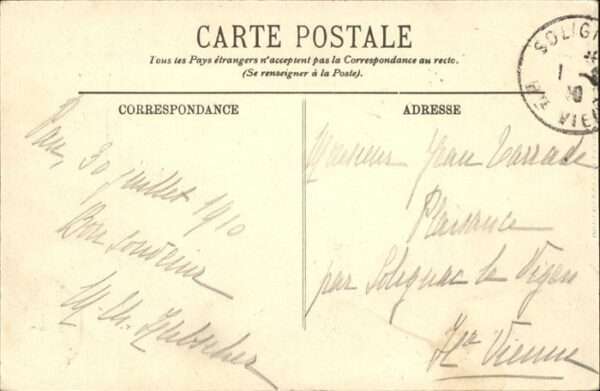 CARTE POSTALE
Tous les Pays étrangers n'acceptent pas la Correspondance au recto.
(Se renseigner à la Poste).
CORRESPONDANCE
ADRESSE
Pau, 30 juillet 1910
Bon souvenir
Monsieur Jean Tarrade
Plaisance
par Solignac le Vigen
Hte Vienne
SOLIGN
1
10
VIEN